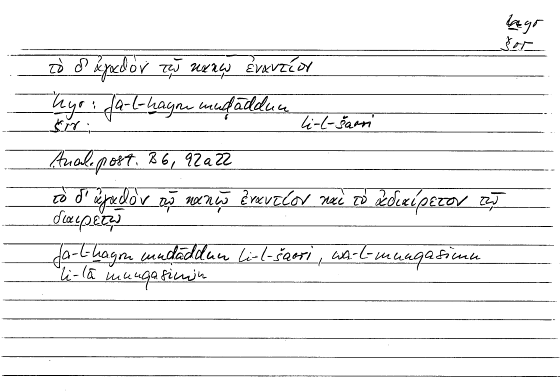 ḫayr
šrr
τὸ δ' ἀγαθὸν τῷ κακῷ ἐναντίον
ḫyr : fa-l-ḫayru muḍāddun
šrr : li-l-šarri
Anal. post. B 6, 92a22
τὸ δ' ἀγαθὸν τῷ κακῷ ἐναντίον καὶ τὸ ἀδιαίρετον τῷ
διαιρετῷ
fa-l-ḫayru muḍāddun li-l-šarri, wa-l-munqasimu
li-lā munqasimin